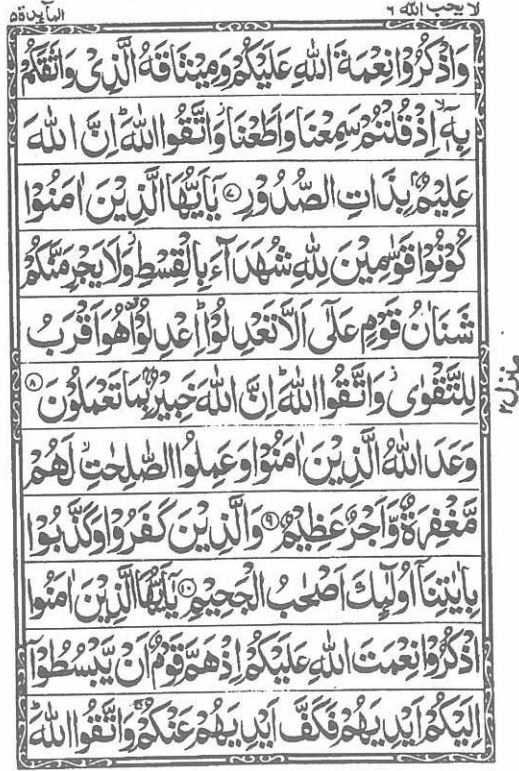 لا یحب الله ٦
المآئدة ٥
وَاذْكُرُوْا نِعْمَةَ اللّٰهِ عَلَيْكُمْ وَمِيْثَاقَهُ الَّذِيْ وَاثَقَكُمْ
بِهٖٓ ۙ اِذْ قُلْتُمْ سَمِعْنَا وَاَطَعْنَا ۡ وَاتَّقُوا اللّٰهَ ؕ اِنَّ اللّٰهَ
عَلِيْمٌۢ بِذَاتِ الصُّدُوْرِ ۝۷ يٰۤاَيُّهَا الَّذِيْنَ اٰمَنُوْا
كُوْنُوْا قَوّٰمِيْنَ لِلّٰهِ شُهَدَآءَ بِالْقِسْطِ ۡ وَلَا يَجْرِمَنَّكُمْ
شَنَاٰنُ قَوْمٍ عَلٰٓى اَلَّا تَعْدِلُوْا ؕ اِعْدِلُوْا ۟ هُوَ اَقْرَبُ
لِلتَّقْوٰى ۡ وَاتَّقُوا اللّٰهَ ؕ اِنَّ اللّٰهَ خَبِيْرٌۢ بِمَا تَعْمَلُوْنَ ۝۸
وَعَدَ اللّٰهُ الَّذِيْنَ اٰمَنُوْا وَعَمِلُوا الصّٰلِحٰتِ ۙ لَهُمْ
مَّغْفِرَةٌ وَّاَجْرٌ عَظِيْمٌ ۝۹ وَالَّذِيْنَ كَفَرُوْا وَكَذَّبُوْا
بِاٰيٰتِنَاۤ اُولٰٓئِكَ اَصْحٰبُ الْجَحِيْمِ ۝۱۰ يٰۤاَيُّهَا الَّذِيْنَ اٰمَنُوا
اذْكُرُوْا نِعْمَتَ اللّٰهِ عَلَيْكُمْ اِذْ هَمَّ قَوْمٌ اَنْ يَّبْسُطُوْۤا
اِلَيْكُمْ اَيْدِيَهُمْ فَكَفَّ اَيْدِيَهُمْ عَنْكُمْ ۚ وَاتَّقُوا اللّٰهَ ؕ
منزل ۲